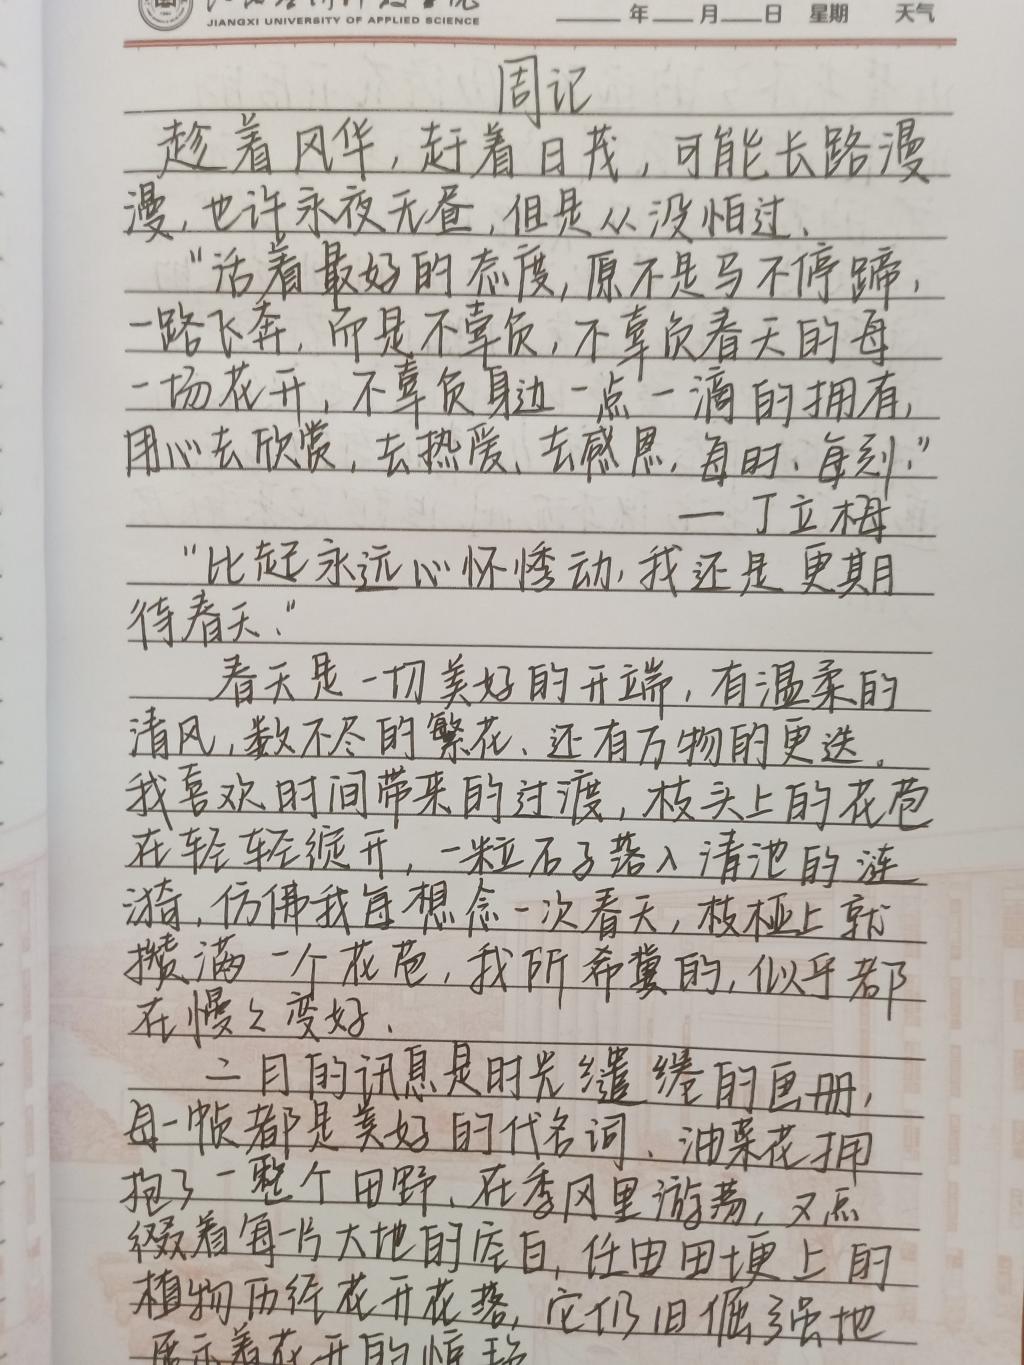 JIANGXI UNIVERSITY OF APPLIED SCIENCE
年 月 日 星期 天气
周记
趁着风华，赶着日茂，可能长路漫
漫，也许永夜无昼，但是从没怕过、
“活着最好的态度，原不是马不停蹄，
一路飞奔，而是不辜负，不辜负春天的每
一场花开，不辜负身边一点一滴的拥有，
用心去欣赏，去热爱、去感恩，每时、每刻。”
— 丁立梅
“比起永远心怀悸动，我还是更期
待春天。”
春天是一切美好的开端，有温柔的
清风，数不尽的繁花、还有万物的更迭。
我喜欢时间带来的过渡，枝头上的花苞
在轻轻绽开，一粒石子落入清池的涟
漪，仿佛我每想念一次春天，枝桠上就
攒满一个花苞，我所希冀的，似乎都
在慢々变好、
二月的讯息是时光缱绻的画册，
每一帧都是美好的代名词、油菜花拥
抱了一整个田野、在季风里游荡，又点
缀着每一片大地的空白，任由田埂上的
植物历经花开花落，它仍旧倔强地
展示着花开的惊